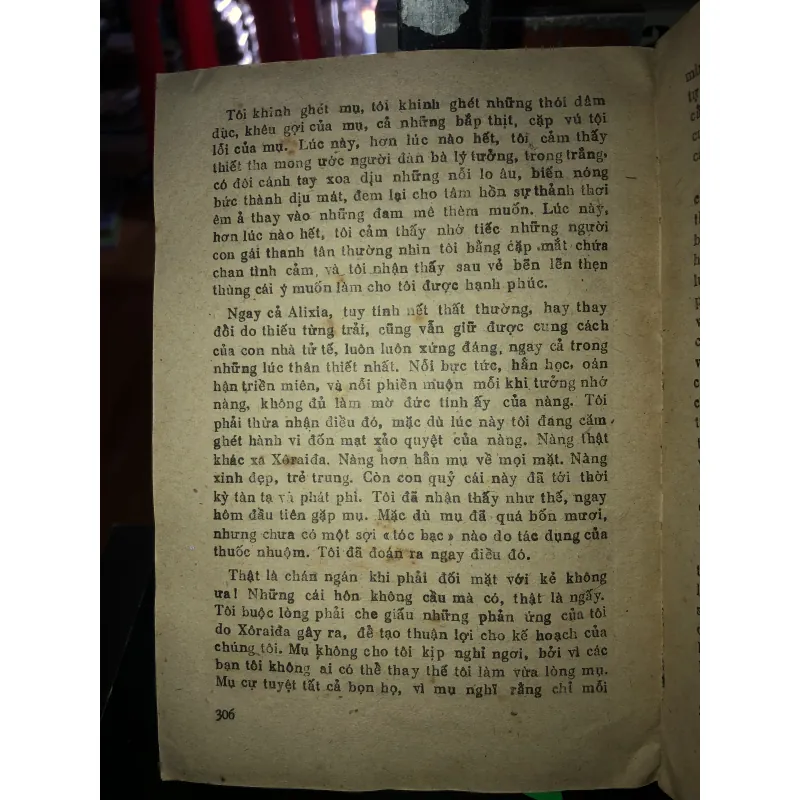 Tôi khinh ghét mụ, tôi khinh ghét những thói dâm
dục, khêu gợi của mụ, cả những bắp thịt, cặp vú tội
lỗi của mụ. Lúc này, hơn lúc nào hết, tôi cảm thấy
thiết tha mong ước người đàn bà lý tưởng, trong trắng,
có đôi cánh tay xoa dịu những nỗi lo âu, biến nóng
bức thành dịu mát, đem lại cho tâm hồn sự thảnh thơi
êm ả thay vào những đam mê thèm muốn. Lúc này,
hơn lúc nào hết, tôi cảm thấy nhớ tiếc những người
con gái thanh tân thường nhìn tôi bằng cặp mắt chứa
chan tình cảm, và tôi nhận thấy sau vẻ bẽn lẽn thẹn
thùng cái ý muốn làm cho tôi được hạnh phúc.
Ngay cả Alixia, tuy tính nết thất thường, hay thay
đổi do thiếu từng trải, cũng vẫn giữ được cung cách
của con nhà tử tế, luôn luôn xứng đáng, ngay cả trong
những lúc thân thiết nhất. Nỗi bực tức, hằn học, oán
hận triền miên, và nỗi phiền muộn mỗi khi tưởng nhớ
nàng, không đủ làm mờ đức tính ấy của nàng. Tôi
phải thừa nhận điều đó, mặc dù lúc này tôi đang căm
ghét hành vi đốn mạt xảo quyệt của nàng. Nàng thật
khác xa Xôraiđa. Nàng hơn hẳn mụ về mọi mặt. Nàng
xinh đẹp, trẻ trung. Còn con quỷ cái này đã tới thời
kỳ tàn tạ và phát phì. Tôi đã nhận thấy như thế, ngay
hôm đầu tiên gặp mụ. Mặc dù mụ đã quá bốn mươi,
nhưng chưa có một sợi «tóc bạc» nào do tác dụng của
thuốc nhuộm. Tôi đã đoán ra ngay điều đó.
Thật là chán ngán khi phải đối mặt với kẻ không
ưa! Những cái hôn không cầu mà có, thật là ngấy.
Tôi buộc lòng phải che giấu những phản ứng của tôi
do Xôraiđa gây ra, để tạo thuận lợi cho kế hoạch của
chúng tôi. Mụ không cho tôi kịp nghỉ ngơi, bởi vì các
bạn tôi không ai có thể thay thế tôi làm vừa lòng mụ.
Mụ cự tuyệt tất cả bọn họ, vì mụ nghĩ rằng chỉ mỗi
306